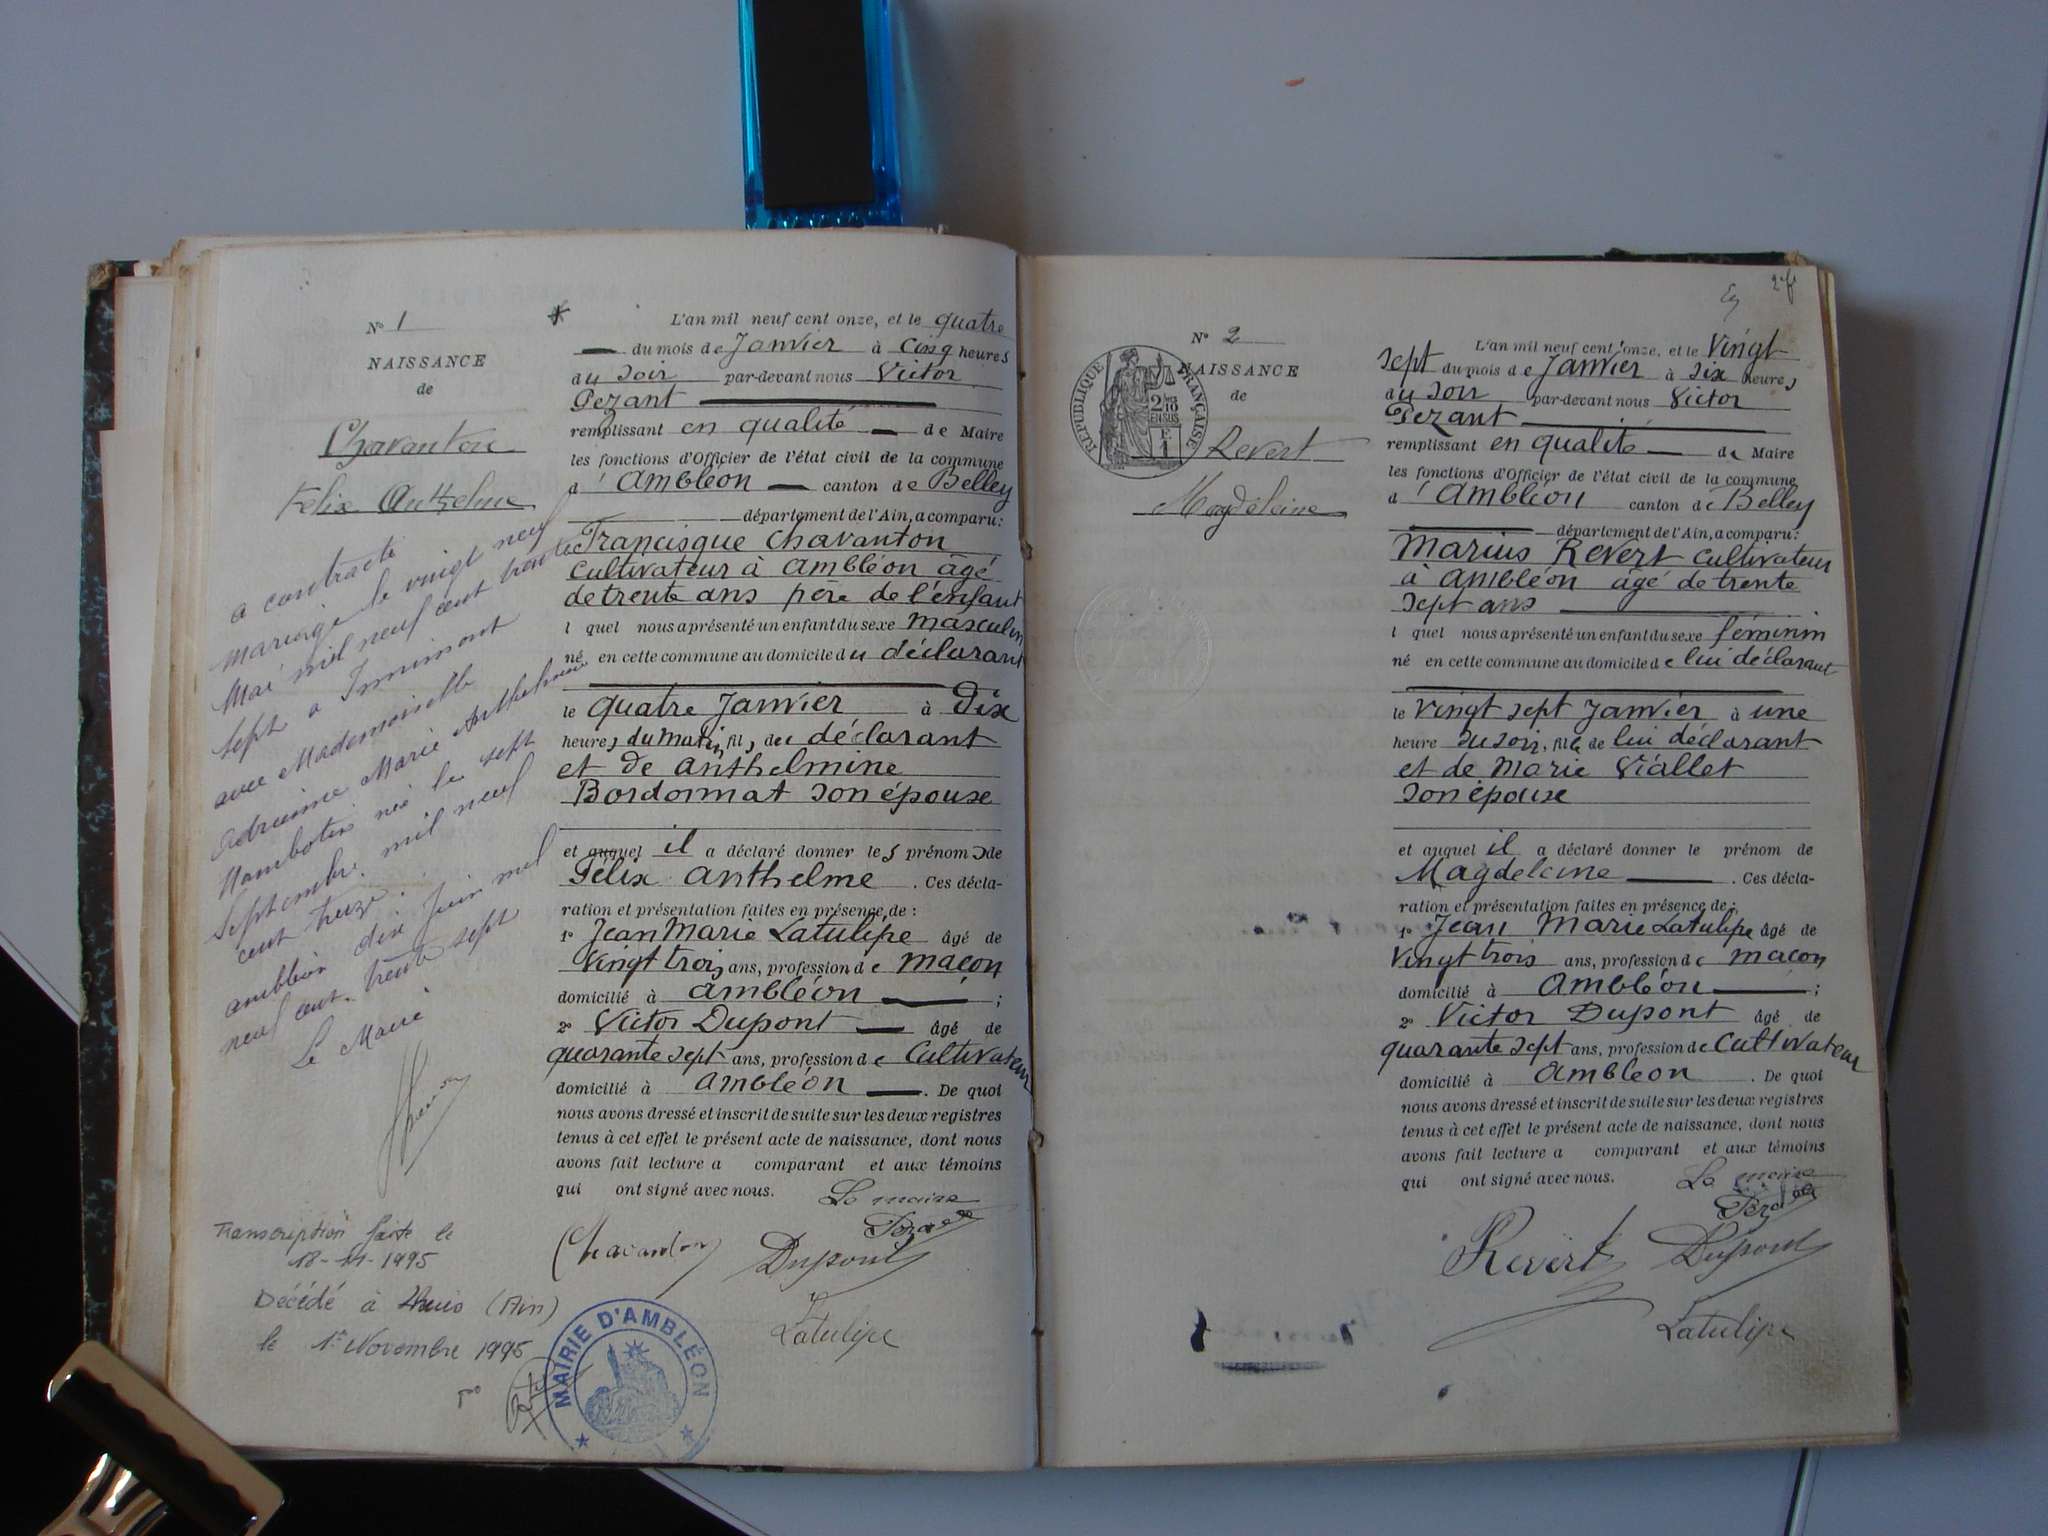 N° 1
NAISSANCE
de
Chavanton
Félix Anthelme
a contracté
mariage le vingt neuf
Mai mil neuf cent trente
sept a Innimont
avec Mademoiselle
Adrienne Marie Anthelmine
née le sept
Septembre mil neuf
cent treize.
ambléon dix Juin mil
neuf cent trente sept
Le Maire
Transcription faite le
18-11-1995
Décédé à Lhuis (Ain)
le 1er Novembre 1995
L'an mil neuf cent onze, et le quatre
du mois de Janvier à Cinq heures
du soir par-devant nous Victor
Pezant
remplissant en qualité de Maire
les fonctions d'Officier de l'état civil de la commune
d' Ambléon canton de Belley
département de l'Ain, a comparu:
Francisque Chavanton
Cultivateur à Ambléon âgé
de trente ans père de l'enfant
l quel nous a présenté un enfant du sexe masculin
né en cette commune au domicile du déclarant
le quatre Janvier à Dix
heures du matin, fils du déclarant
et de Anthelmine
Bordonnat son épouse
et auquel il a déclaré donner les prénoms de
Félix Anthelme. Ces décla-
ration et présentation faites en présence de:
1° Jean Marie Latulipe âgé de
Vingt trois ans, profession de maçon
domicilié à Ambléon ;
2° Victor Dupont âgé de
quarante sept ans, profession de Cultivateur
domicilié à Ambléon. De quoi
nous avons dressé et inscrit de suite sur les deux registres
tenus à cet effet le présent acte de naissance, dont nous
avons fait lecture a comparant et aux témoins
qui ont signé avec nous. Le maire
Pezant
Chavanton Dupont
Latulipe
MAIRIE D'AMBLÉON
2
N° 2
NAISSANCE
de
RÉPUBLIQUE FRANÇAISE
2/10
EN SUS
Revert
Magdeleine
L'an mil neuf cent onze, et le Vingt
sept du mois de Janvier à six heures
du soir par-devant nous Victor
Pezant
remplissant en qualité de Maire
les fonctions d'Officier de l'état civil de la commune
d' Ambléon canton de Belley
département de l'Ain, a comparu:
Marius Revert Cultivateur
à Ambléon âgé de trente
sept ans
l quel nous a présenté un enfant du sexe féminin
né en cette commune au domicile de lui déclarant
le Vingt sept Janvier à une
heure du soir, fille de lui déclarant
et de Marie Viallet
son épouse
et auquel il a déclaré donner le prénom de
Magdeleine. Ces décla-
ration et présentation faites en présence de:
1° Jean Marie Latulipe âgé de
Vingt trois ans, profession de maçon
domicilié à Ambléon ;
2° Victor Dupont âgé de
quarante sept ans, profession de Cultivateur
domicilié à Ambleon. De quoi
nous avons dressé et inscrit de suite sur les deux registres
tenus à cet effet le présent acte de naissance, dont nous
avons fait lecture a comparant et aux témoins
qui ont signé avec nous. Le maire
Pezant
Revert Dupont
Latulipe